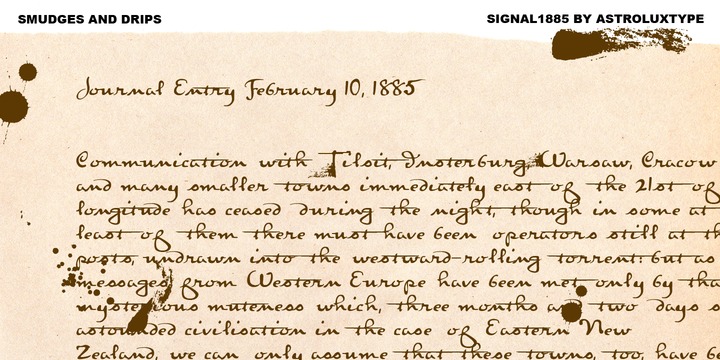 SMUDGES AND DRIPS
SIGNAL1885 BY ASTROLUXTYPE
Journal Entry February 10, 1885
Communication with Tilsit, Insterburg, Warsaw, Cracow
and many smaller towns immediately east of the 21st of
longitude has ceased during the night, though in some at
least of them there must have been operators still at th
posts, undrawn into the westward-rolling torrent: but as
messages from Western Europe have been met only by tha
mysterious muteness which, three months and two days s
astounded civilisation in the case of Eastern New
Zealand, we can only assume that these towns, too, have b